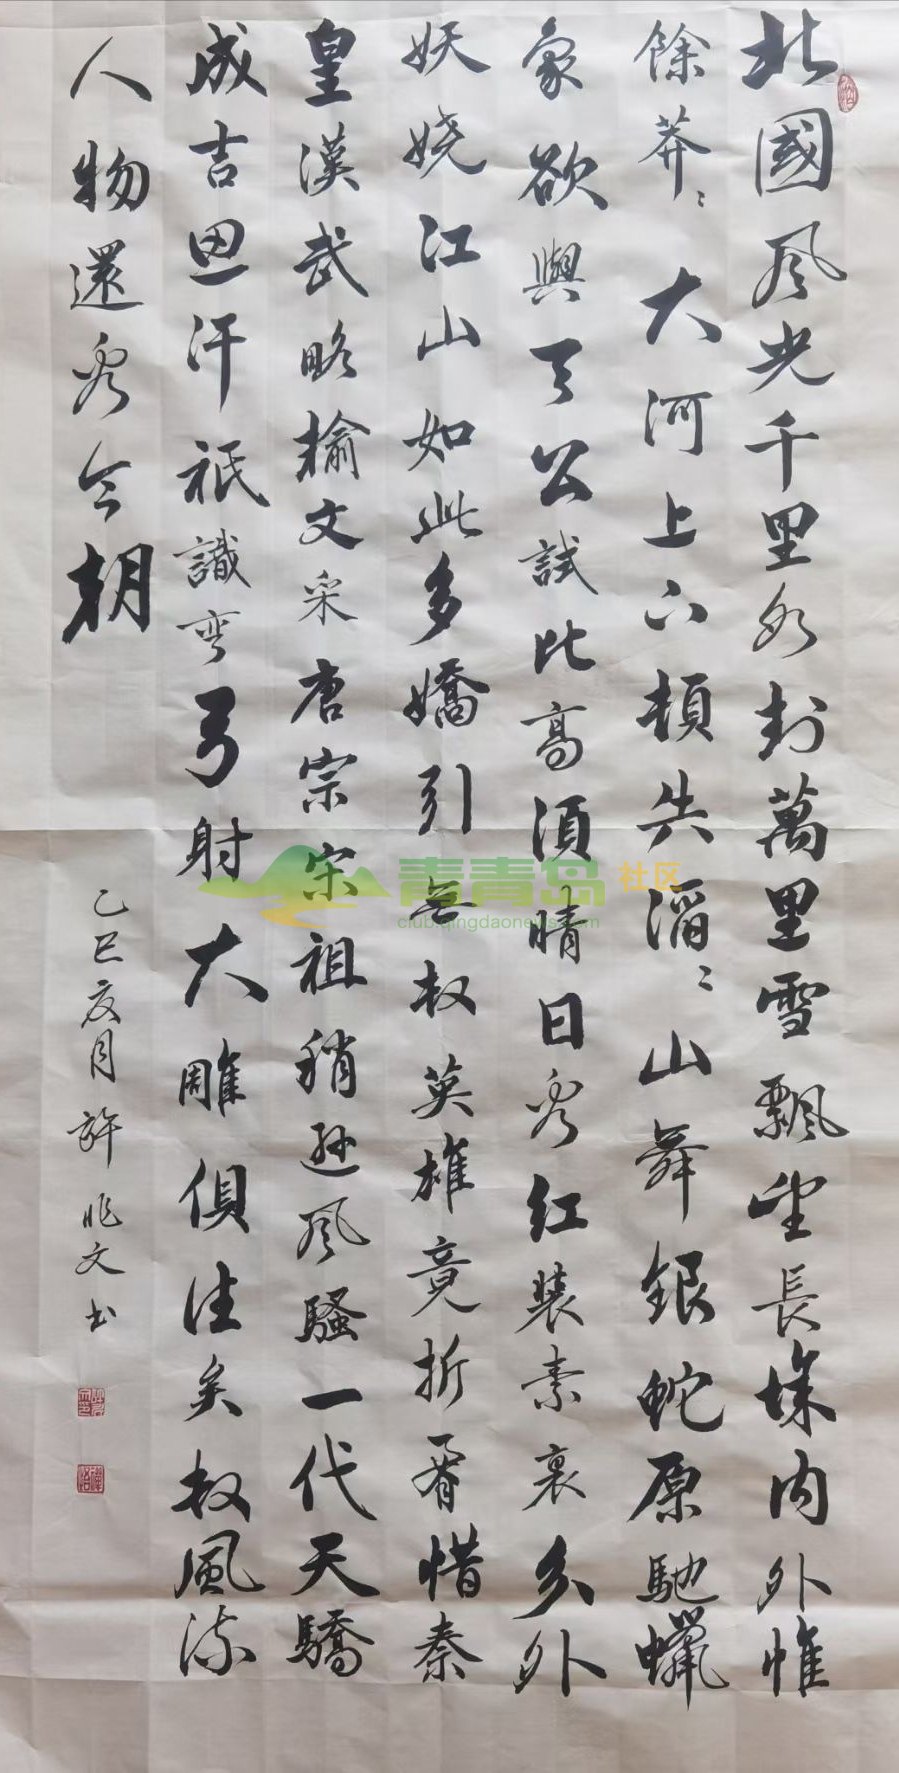 北國风光千里冰封萬里雪飄望長城内外惟
餘莽〻大河上下頓失滔〻山舞銀蛇原馳蠟
象欲與天公試比高須晴日看红裝素裹分外
妖娆江山如此多嬌引無数英雄竟折腰惜秦
皇漢武略输文采唐宗宋祖稍遜风騷一代天驕
成吉思汗祇識彎弓射大雕俱往矣数風流
人物還看今朝
乙巳亥月許兆文书
青青岛社区
club.qingdaonews.com